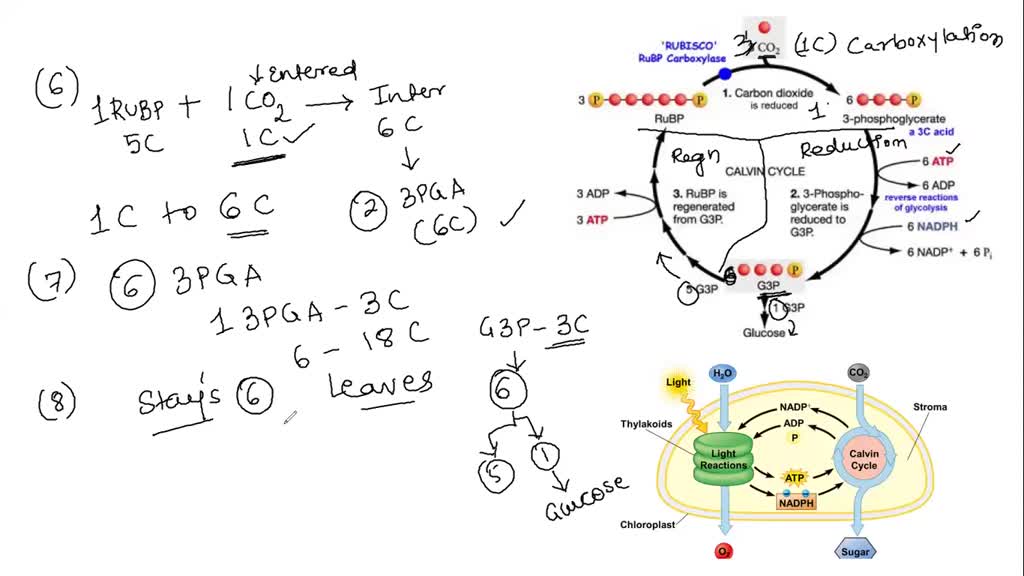 (6)
1 RUBP + 1 CO2 → Inter
↓ Entered
5C 1C ✓ 6C
1C to 6C
② 3PGA
(6C) ✓
(7) ⑥ 3PGA
1 3PGA - 3C
6 - 18C
(8) Stay's ⑥ Leaves
G3P - 3C
6
5 1
Glucose
'RUBISCO'
RuBP Carboxylase
CO2 (1C) Carboxylation
1. Carbon dioxide
is reduced
3 P P
RuBP
6 P
3-phosphoglycerate
a 3C acid
1.
Regn
Reduction
CALVIN CYCLE
6 ATP ✓
6 ADP
reverse reactions
of glycolysis
6 NADPH ✓
6 NADP+ + 6 Pi
3 ADP
3 ATP
3. RuBP is
regenerated
from G3P.
2. 3-Phospho-
glycerate is
reduced to
G3P.
P
G3P
5 G3P
1 G3P
Glucose 2
Light
H2O
CO2
Thylakoids
Stroma
NADP+
ADP
P
Light
Reactions
Calvin
Cycle
ATP
NADPH
Chloroplast
O2
Sugar